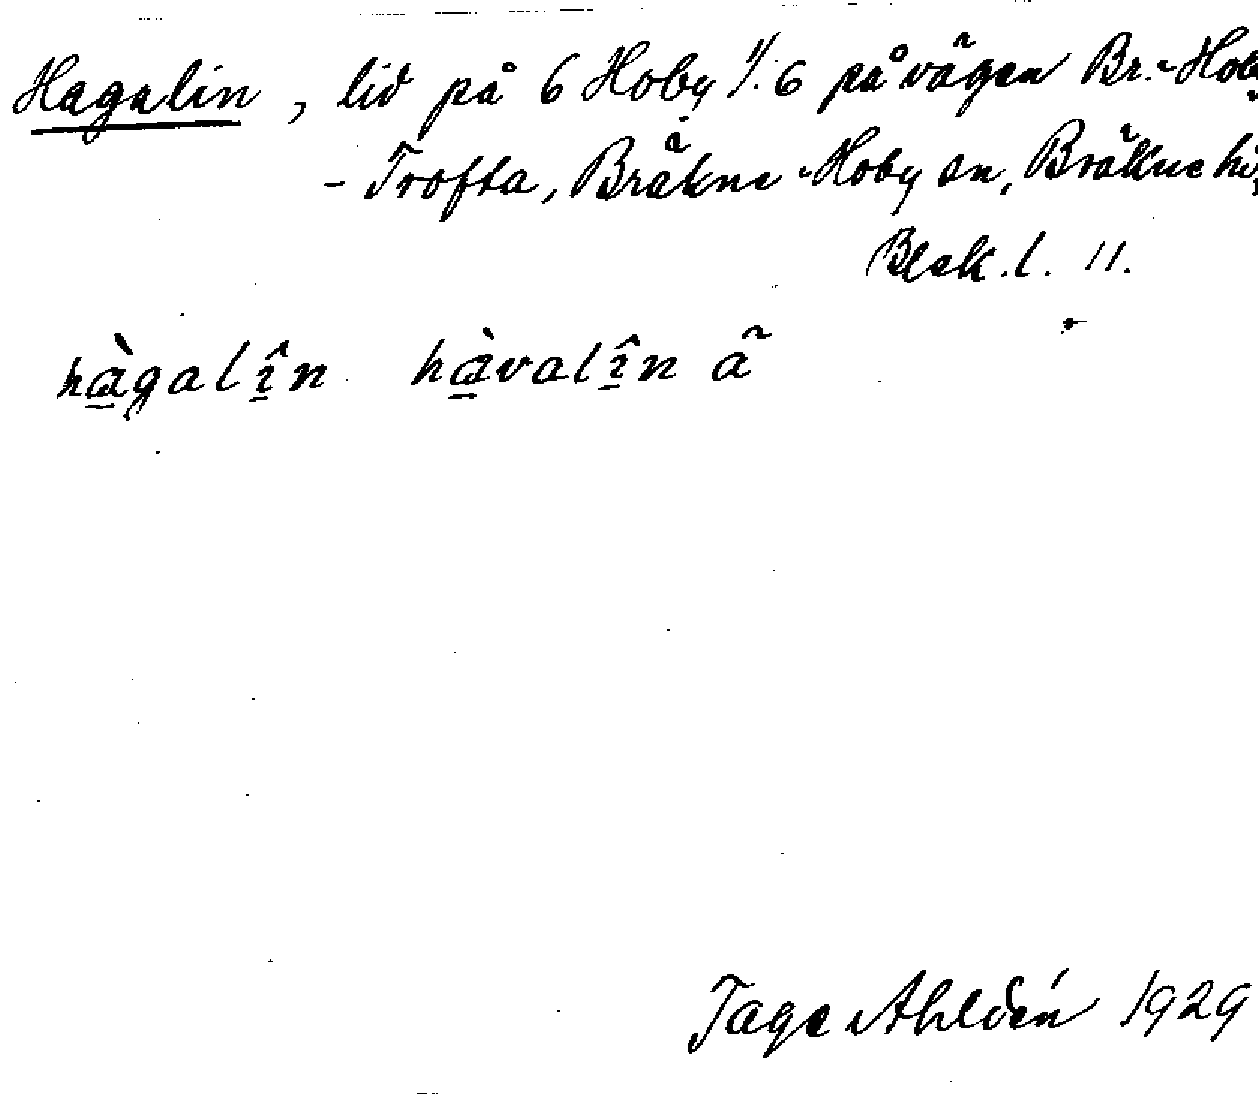 Hagalin, lid på 6 Hoby 1/: 6 på vägen Br.-Hoby
- Trofta, Bräkne-Hoby sn, Bräkne hd,
Blek. l. 11.
hàgalîn hàvalîn ã
Tage Ahldén 1929